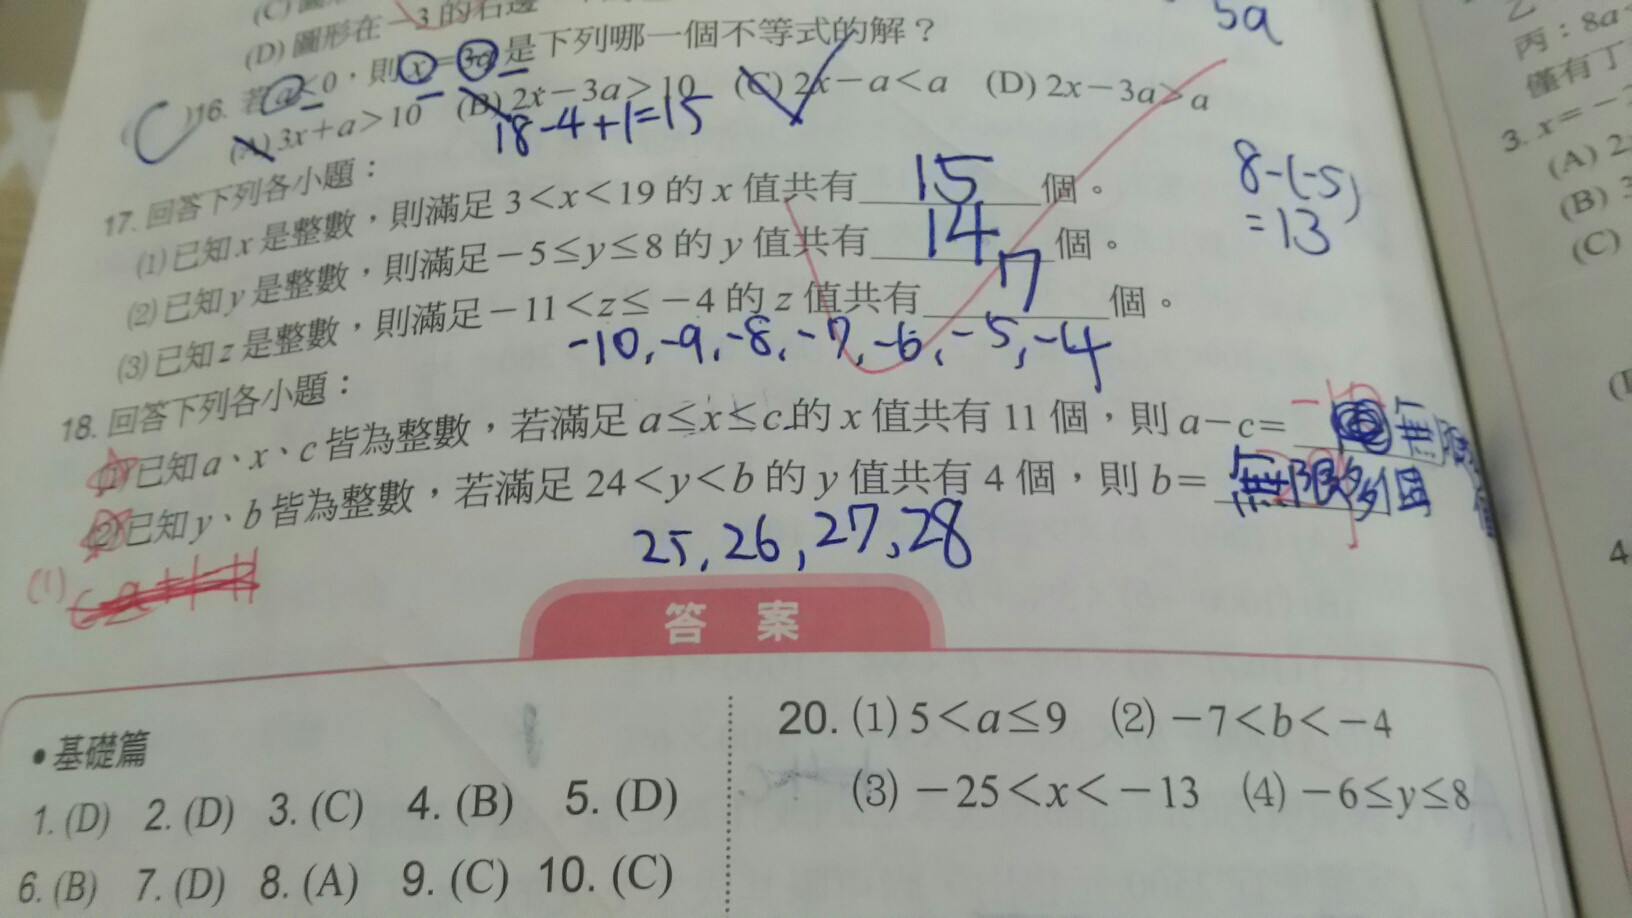 (D) 圖形在-3的右邊
5a
)16. 若a<0，則x=3a是下列哪一個不等式的解？
C
(A) 3x+a>10 (B) 2x-3a>10 (C) 2x-a<a (D) 2x-3a>a
18-4+1=15
17. 回答下列各小題：
(1)已知x是整數，則滿足3<x<19的x值共有 15 個。
(2)已知y是整數，則滿足-5≤y≤8的y值共有 14 個。
(3)已知z是整數，則滿足-11<z≤-4的z值共有 7 個。
8-(-5)
=13
-10,-9,-8,-7,-6,-5,-4
18. 回答下列各小題：
(1)已知a、x、c皆為整數，若滿足a≤x≤c的x值共有11個，則a-c= 無
(2)已知y、b皆為整數，若滿足24<y<b的y值共有4個，則b= 無限多個
25,26,27,28
(1)
答 案
•基礎篇
1. (D) 2. (D) 3. (C) 4. (B) 5. (D)
6. (B) 7. (D) 8. (A) 9. (C) 10. (C)
20. (1) 5<a≤9 (2) -7<b<-4
(3) -25<x<-13 (4) -6≤y≤8
丙：8a
僅有丁
3. x=-
(A) 2
(B) 3
(C)
4